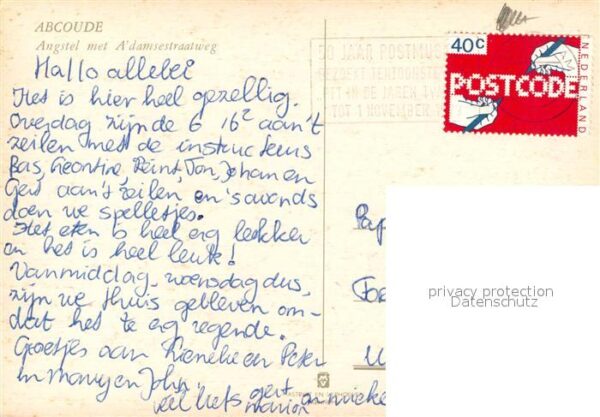 ABCOUDE
Angstel met A'damsestraatweg
Hallo allebei
Het is hier heel gezellig.
Overdag zijn de 6 16² aan't
zeilen met de instructeurs
Bas, Leontine, Reint, Ton, Johan en
Gert aan't zeilen en 's avonds
doen we spelletjes.
Het eten is heel erg lekker
en het is heel leuk!
Vanmiddag, woensdag dus,
zijn we thuis gebleven om-
dat het te erg regende.
Groetjes aan Rieneke en Peter
en en John.
veel liefs gert marion
40c
POSTCODE
NEDERLAND
JAAR POSTMUS
BEZOEK TENTOONSTE
TOT 1 NOVEMBER
Pap
privacy protection
Datenschutz